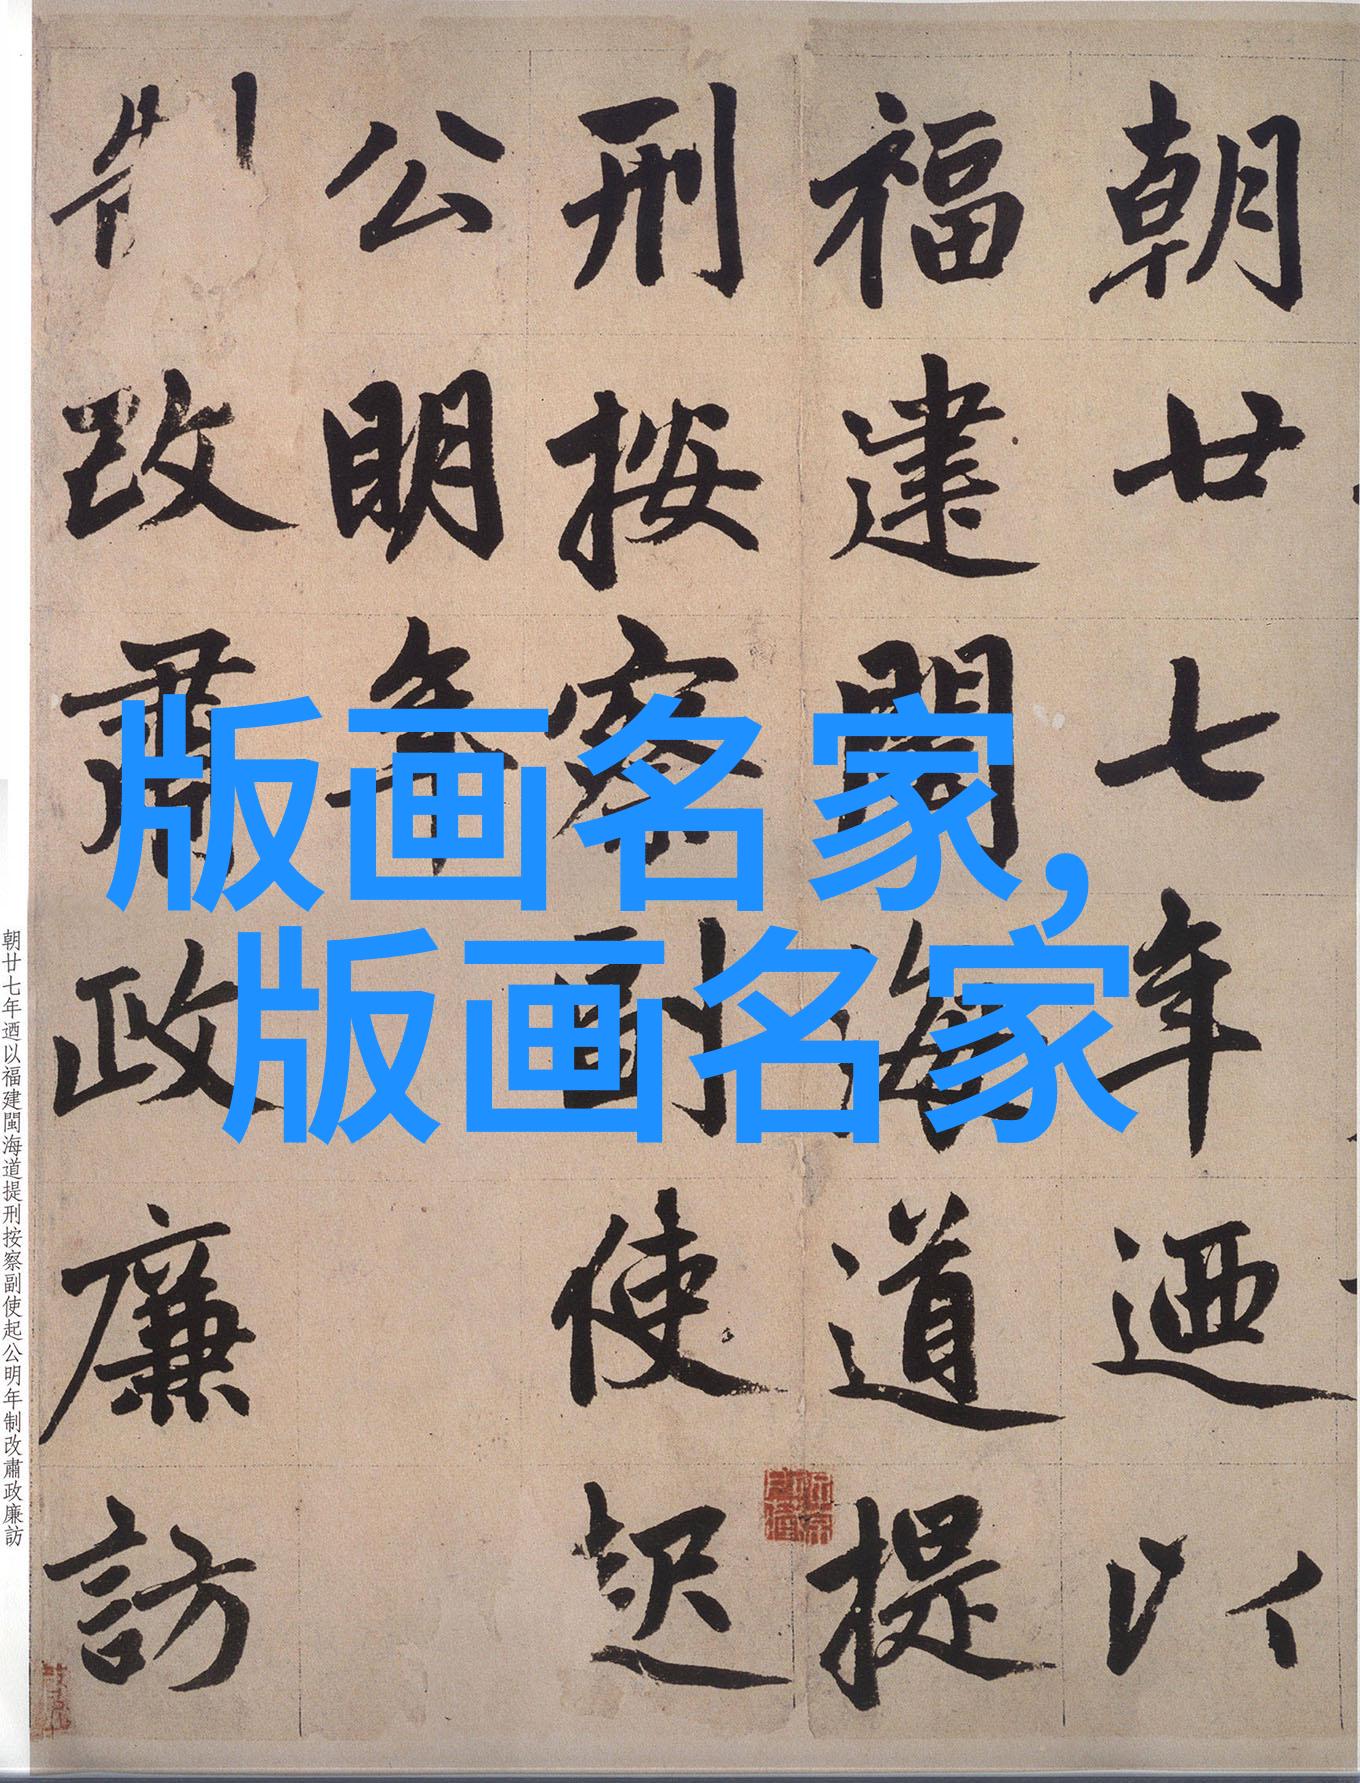 朝廿七年迺以
福建閩海道提
刑按察副使起
公明年
制改肅政廉訪
版画名家,
版画名家
朝廿七年迺以福建閩海道提刑按察副使起公明年制改肅政廉訪